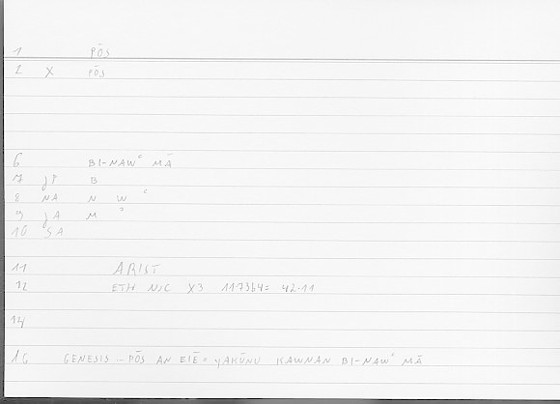 1 PŌS
2 X PŌS
6 BI-NAWʿ MĀ
7 JT B
8 NA N W ʿ
9 JA M
10 ŠA
11 ARIST
12 ETH NIC X3 1173b4= 42.11
14
16 GENESIS – PŌS AN EIĒ = YAKŪNU KAWNAN BI-NAWʿ MĀ